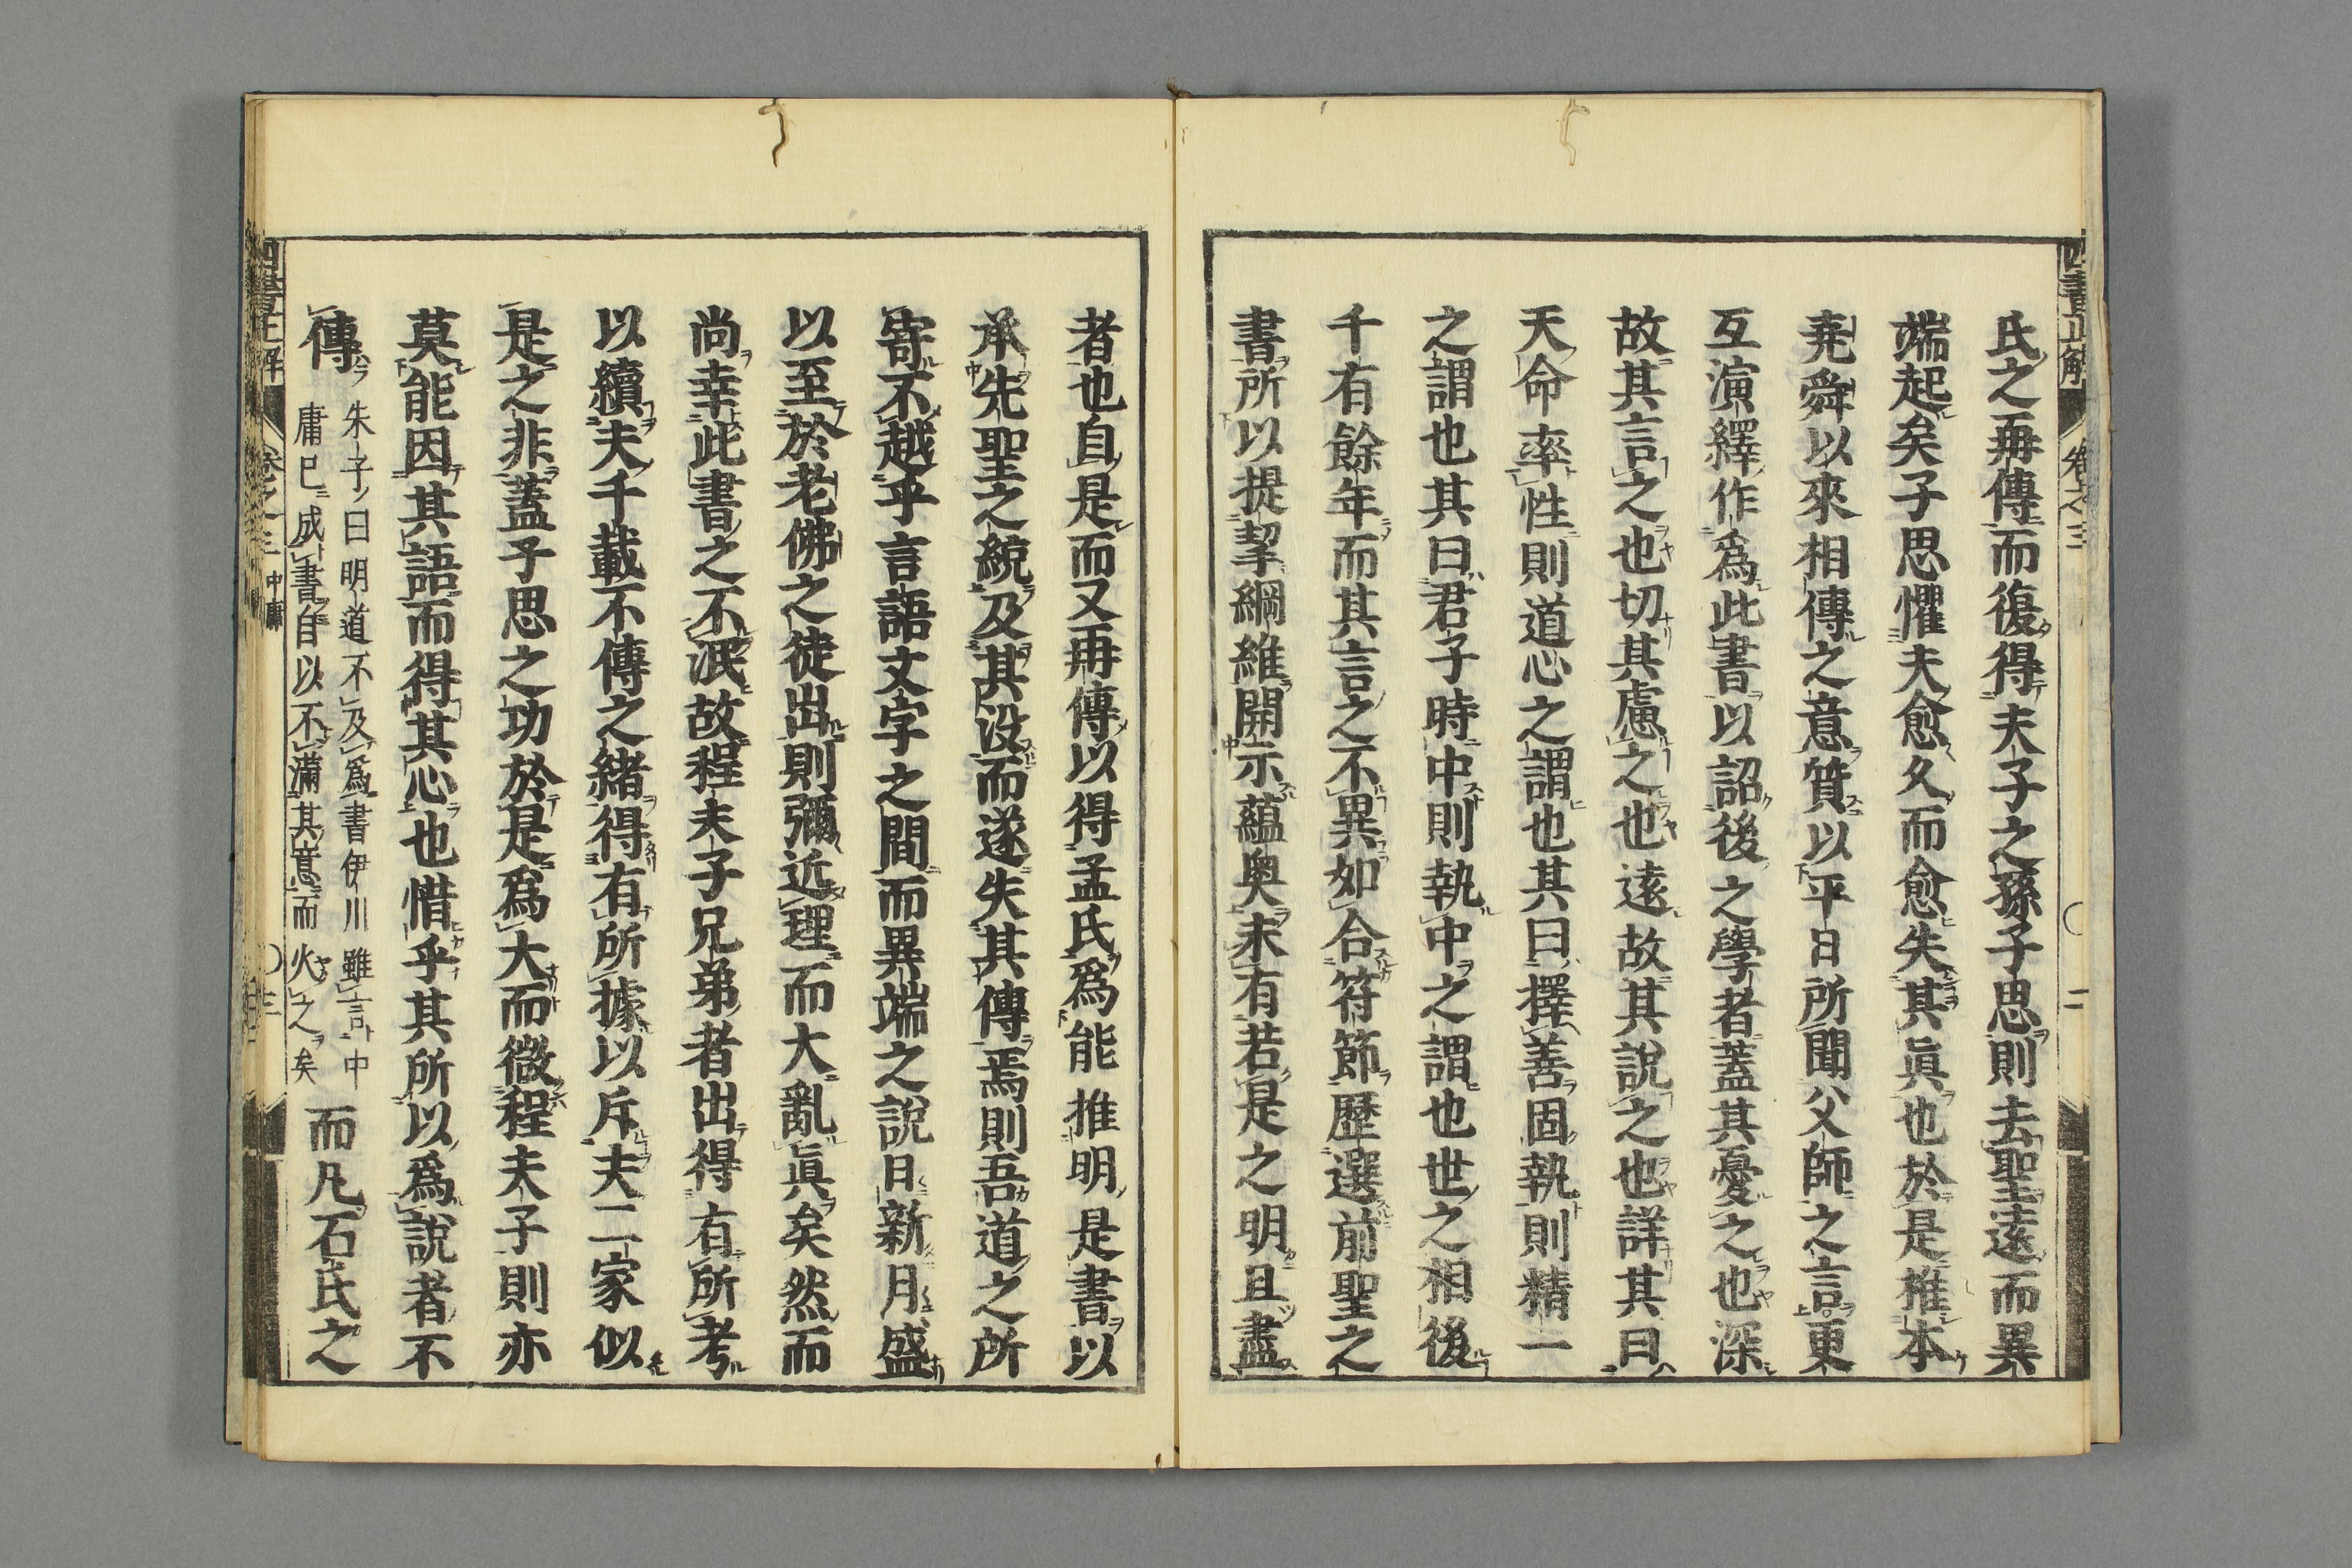 四書正解 卷之三 二
氏之再傳而復得夫子之孫子思則去聖遠而異
端起矣子思懼夫愈久而愈失其眞也於是推本
堯舜以來相傳之意質以平日所聞父師之言更
互演繹作爲此書以詔後之學者蓋其憂之也深
故其言之也切其慮之也遠故其說之也詳其曰
天命率性則道心之謂也其曰擇善固執則精一
之謂也其曰君子時中則執中之謂也世之相後
千有餘年而其言之不異如合符節歷選前聖之
書所以提挈綱維開示蘊奧未有若是之明且盡
者也自是而又再傳以得孟氏爲能推明是書以
承先聖之統及其沒而遂失其傳焉則吾道之所
寄不越乎言語文字之間而異端之說日新月盛
以至於老佛之徒出則彌近理而大亂眞矣然而
尚幸此書之不泯故程夫子兄弟者出得有所考
以續夫千載不傳之緒得有所據以斥夫二家似
是之非蓋子思之功於是爲大而微程夫子則亦
莫能因其語而得其心也惜乎其所以爲說者不
傳
朱子曰明道不及爲書伊川雖言中
庸已成書自以不滿其意而火之矣
而凡石氏之
四書正解 卷之三 中庸 三